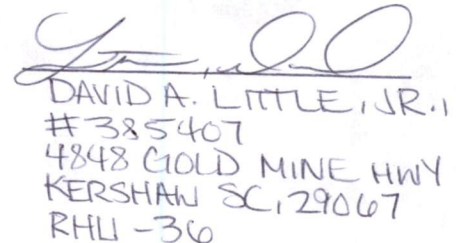 DAVID A. LITTLE, JR.,
#385407
4848 GOLD MINE HWY
KERSHAW SC, 29067
RHU -36